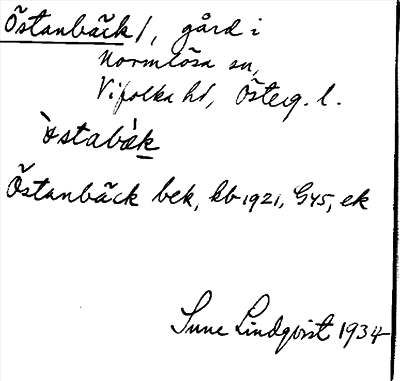 Östanbäck/, gård i
Normlösa sn,
Vifolka hd, Österg. l.
östabäk
Östanbäck bek, kb 1921, G45, ek
Sune Lindqvist 1934